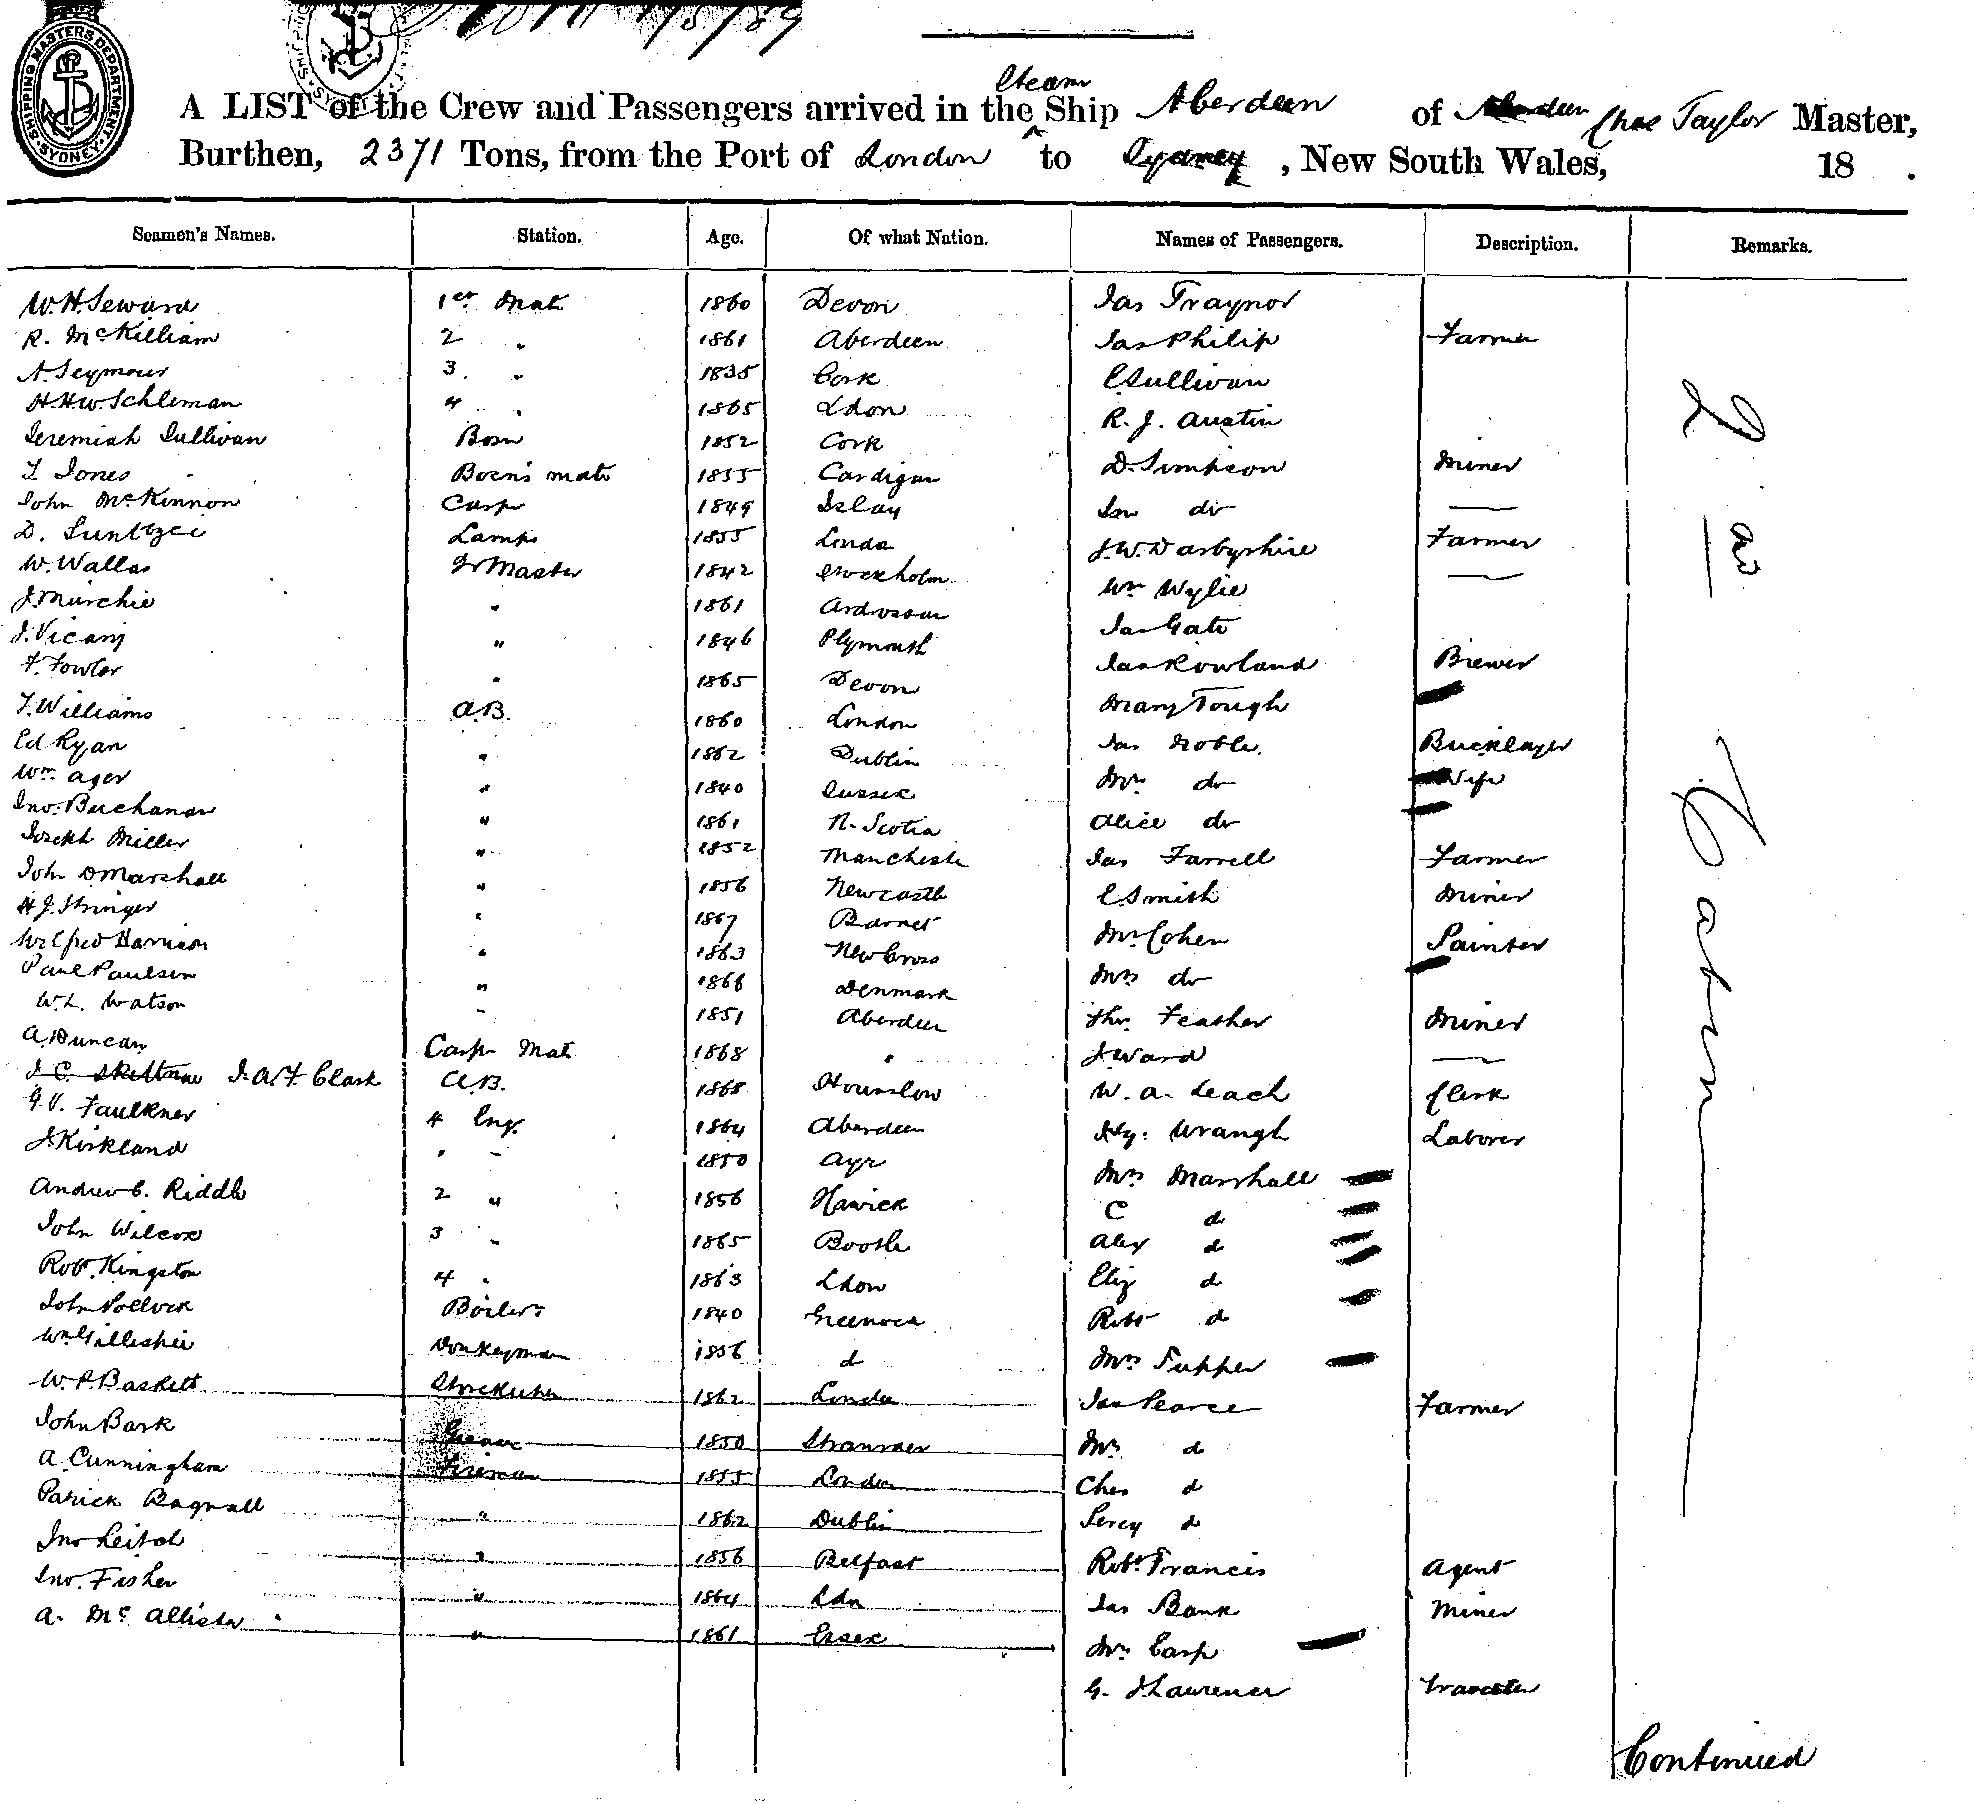 SHIPPING MASTERS DEPARTMENT SYDNEY
1/5/89
A LIST of the Crew and Passengers arrived in the Steam Ship Aberdeen of Aberdeen Chas Taylor Master,
Burthen, 2371 Tons, from the Port of London to Sydney, New South Wales, 18 .
Seamen's Names. Station. Age. Of what Nation. Names of Passengers. Description. Remarks.
W. H. Seward 1st Mate 1860 Devon Jas Traynor
R. McKilliam 2 " 1861 Aberdeen Jas Philip Farmer
A. Seymour 3 " 1835 Cork C Sullivan
H. H. W. Schleman 4 " 1865 Ldon R. J. Austin
Jeremiah Sullivan Bosn 1852 Cork D. Simpson Miner
T Jones Bosn's mate 1855 Cardigan Jno do —
John McKinnon Carpr 1849 Islay J. W. Darbyshire Farmer
D. Lamps 1855 London Wm Wylie —
W. Wallas Qr Master 1842 Stockholm Jas Gate
J Murchie " 1861 Ardrossan Jas Rowland Brewer
J. Vicary " 1846 Plymouth Mary Tough
F. Fowler " 1865 Devon Jas Noble Bricklayer
T. Williams A.B. 1860 London Mrs do Wife
Ed Ryan " 1862 Dublin Alice do
Wm. Ager " 1840 Sussex Jas Farrell Farmer
Jno. Buchanan " 1861 N. Scotia C Smith Miner
Joseph Miller " 1852 Manchester Mr Cohen Painter
John D Marshall " 1856 Newcastle Mrs do
H. J. Stringer " 1867 Barnet Thos. Feather Miner
Wilfred Harrison " 1863 New Cross J Ward —
Paul Paulsen " 1866 Denmark W. A. Leach Clerk
W. L. Watson " 1851 Aberdeen Hy. Wrangh Laborer
A. Duncan Carpr Mate 1868 " Mrs Marshall
J. C. Skeltrine J. A. F. Clark A.B. 1868 Hounslow C d
G. V. Faulkner 4 Eng. 1864 Aberdeen Alex d
J. Kirkland " " 1850 Ayr Eliz d
Andrew C. Riddle 2 " 1856 Hawick Robt d
John Wilcox 3 " 1865 Bootle Mrs Tupper
Robt. Kingston 4 " 1863 Ldon Jas Pearce Farmer
John Pollock Boilers 1840 Greenock Mrs d
Wm Gillespie Donkeyman 1856 d Chas d
W. P. Baskett Storekeeper 1862 London Percy d
John Bark Greaser 1850 Stranraer Robt Francis Agent
A. Cunningham Fireman 1855 London Jas Bank Miner
Patrick Bagnall " 1862 Dublin Mrs Carp
Jno Leitch " 1856 Belfast G. J Lawrence
Jno. Fisher " 1864 Ldn
A. McAllister " 1861 Essex
2nd
Cabin
Continued